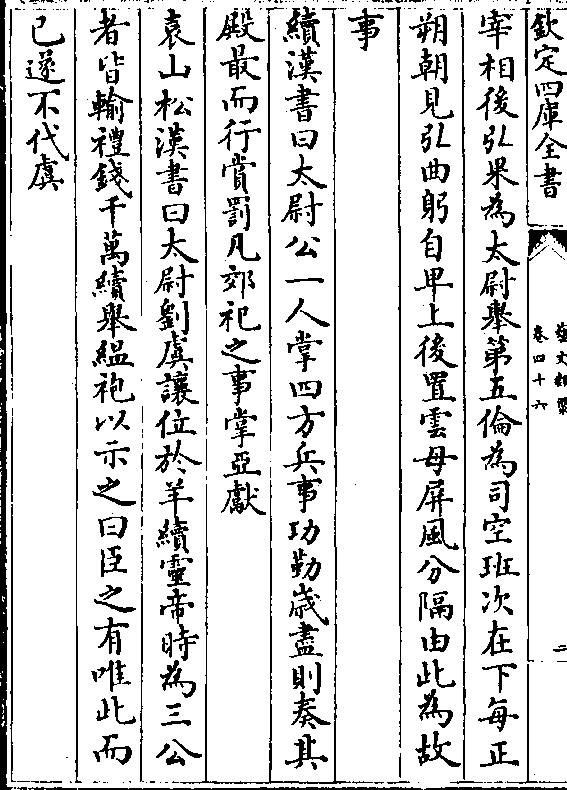 欽定四庫全書
藝文類聚
卷四十六
二
宰相後弘果為太尉舉第五倫為司空班次在下每正
朔朝見弘曲躬自卑上後置雲母屏風分隔由此為故
事
續漢書曰太尉公一人掌四方兵事功勤歲盡則奏其
殿最而行賞罰凡郊祀之事掌亞獻
袁山松漢書曰太尉劉虞讓位於羊續靈帝時為三公
者皆輸禮錢千萬續舉縕袍以示之曰臣之有唯此而
已遂不代虞